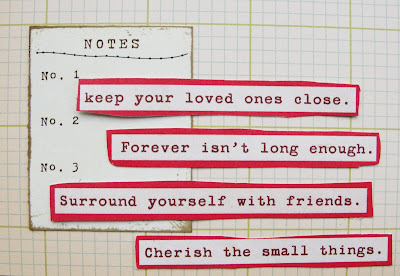 NOTES
No. 1
keep your loved ones close.
No. 2
Forever isn't long enough.
No. 3
Surround yourself with friends.
Cherish the small things.